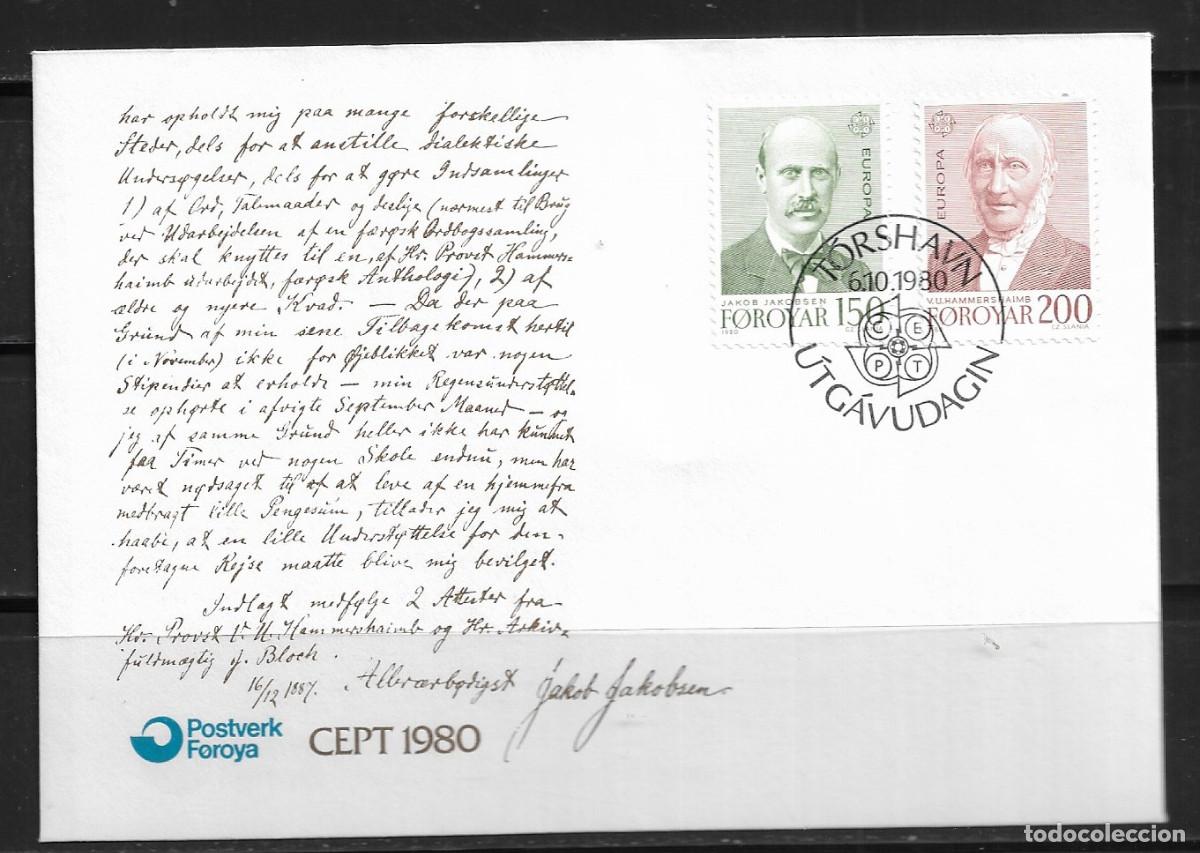 har opholdt mig paa mange forskellige
Steder, dels for at anstille dialektiske
Undersøgelser, dels for at gøre Indsamlinger
1) af Ord, Talemaader og deslige (nærmest til Brug
ved Udarbejdelsen af en færøsk Ordbogssamling,
der skal knyttes til en, af Hr. Provst Hammers-
haimb udarbejdet, færøsk Anthologi), 2) af
ældre og nyere Kvad. — Da der paa
Grund af min sene Tilbagekomst hertil
(i November) ikke for Øjeblikket var nogen
Stipendier at erholde — min Regensunderstøttel-
se ophørte i afvigte September Maaned — og
jeg af samme Grund heller ikke har kunnet
faa Timer ved nogen Skole endnu, men har
været nødsaget til at leve af en hjemmefra
medbragt lille Pengesum, tillader jeg mig at
haabe, at en lille Understøttelse for den
foretagne Rejse maatte blive mig bevilget.
Indlagt medfølge 2 Attester fra
Hr. Provst V. U. Hammershaimb og Hr. Arkiv-
fuldmægtig J. Bloch.
16/12 1887. Allerærbødigst Jakob Jakobsen.
Postverk
Føroya
CEPT 1980
EUROPA
JAKOB JAKOBSEN
FØROYAR 150
1980
CZ. SLANIA
EUROPA
V.U. HAMMERSHAIMB
FØROYAR 200
CZ. SLANIA
TÓRSHAVN
6.10.1980
C E P T
ÚTGÁVUDAGIN
todocoleccion